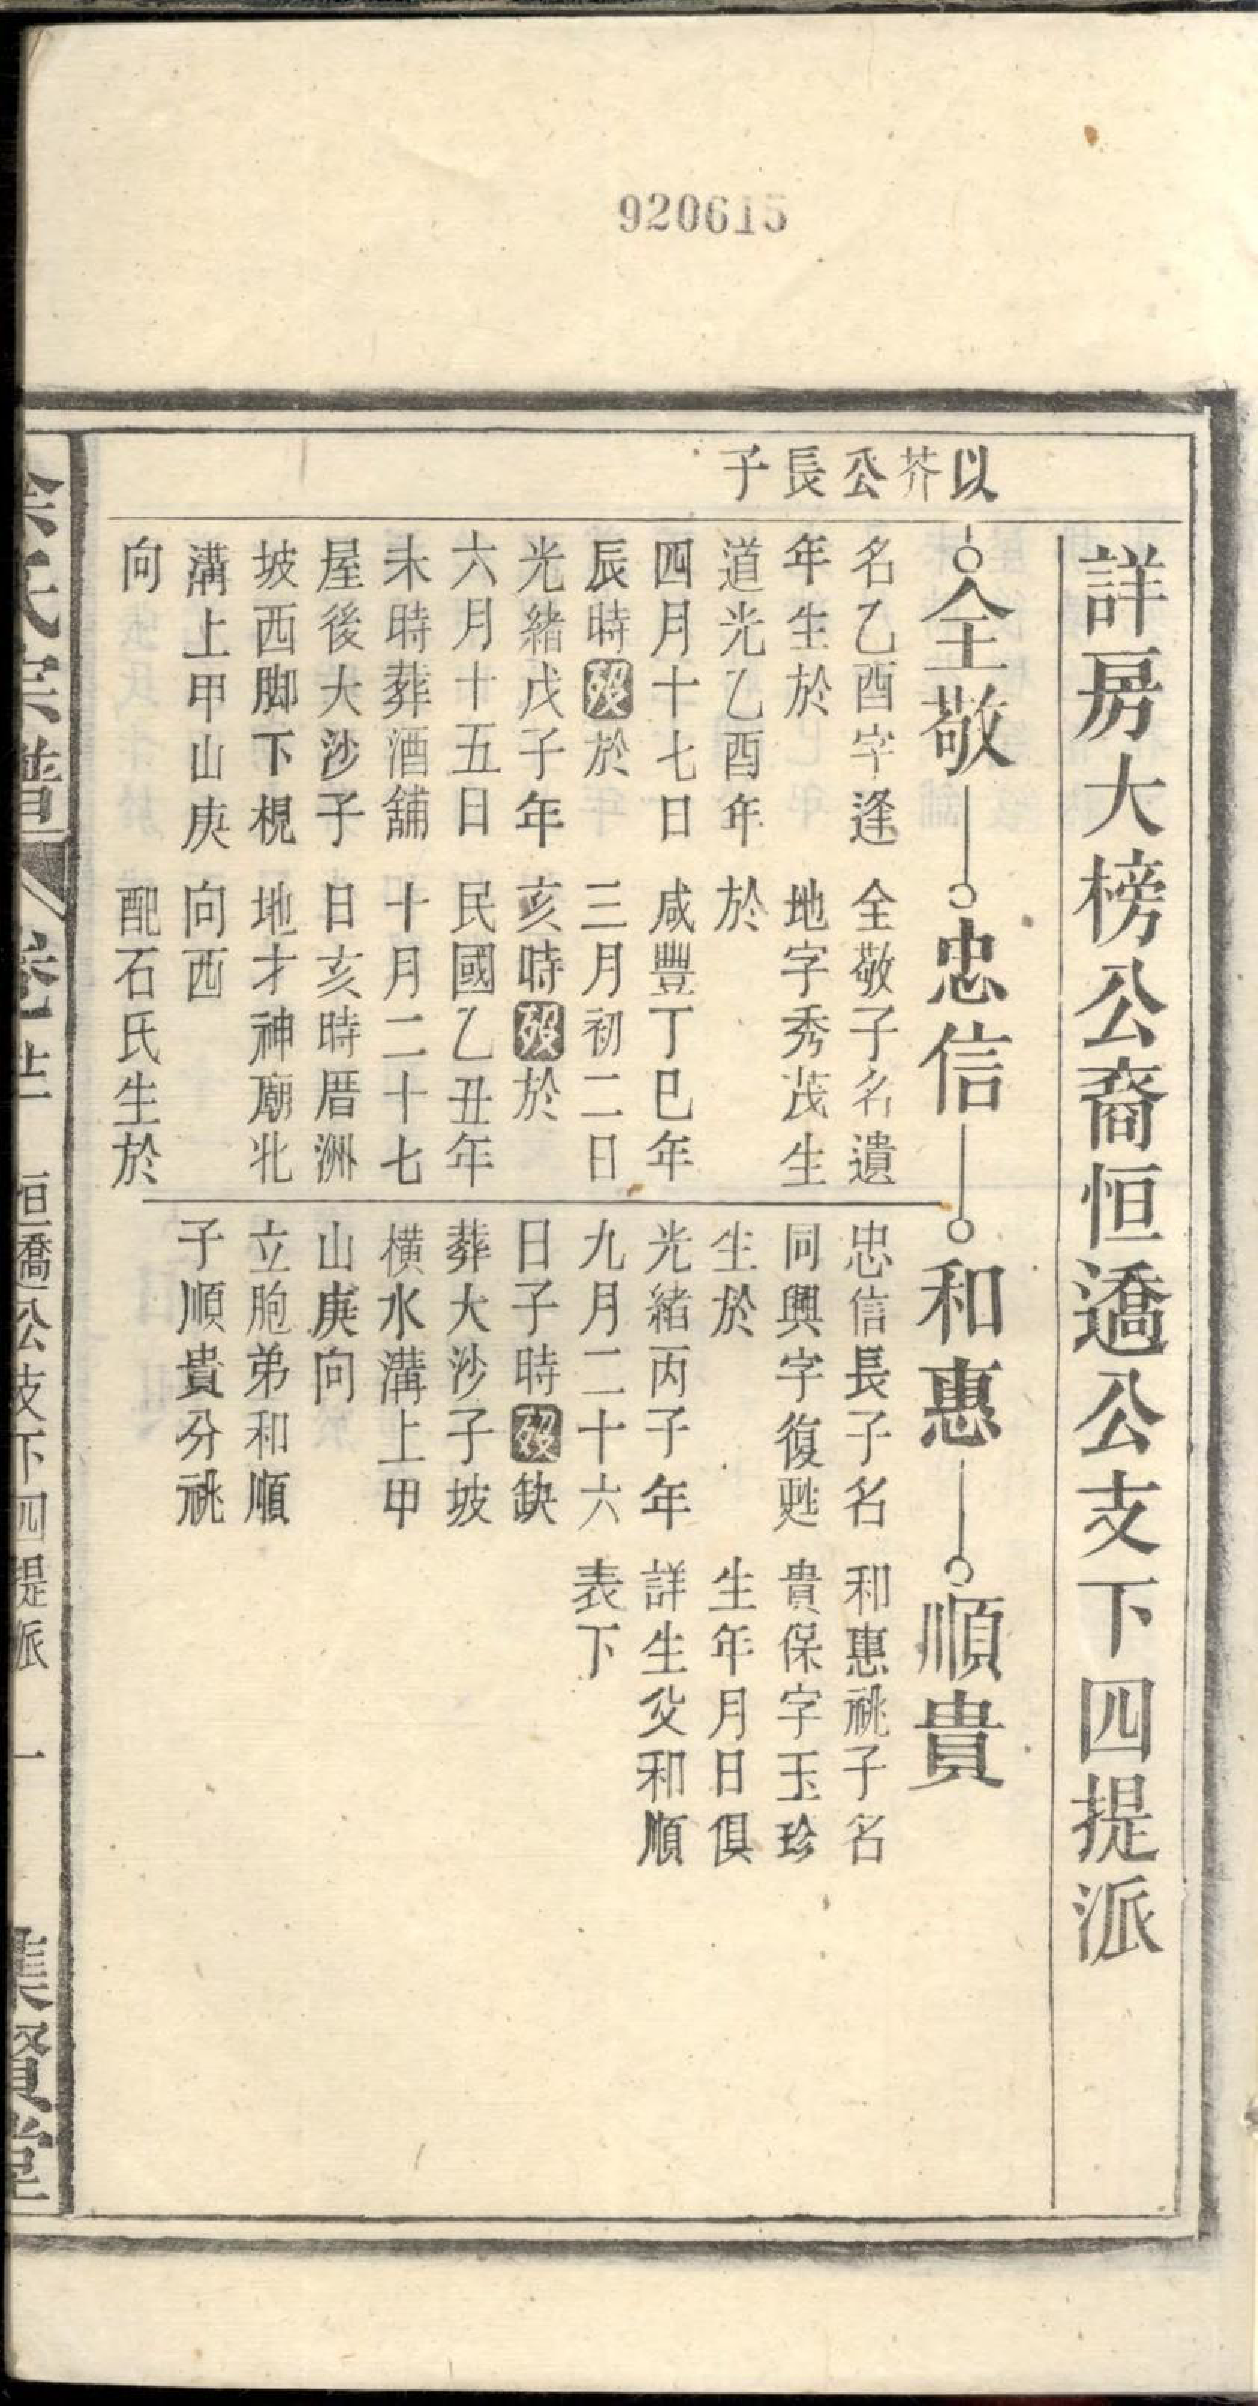 920615
詳房大榜公裔恒𨖢公支下四提派
以芥公長子
全敬
名乙酉字逢
年生於
道光乙酉年
四月十七日
辰時歿於
光緒戊子年
六月十五日
未時葬酒舖
屋後大沙子
坡西脚下梘
溝上甲山庚
向
忠信
全敬子名遺
地字秀茂生
於
咸豐丁巳年
三月初二日
亥時歿於
民國乙丑年
十月二十七
日亥時厝洲
地才神廟北
向西
配石氏生於
和惠
忠信長子名
同興字復甦
生於
光緒丙子年
九月二十六
日子時歿缺
葬大沙子坡
橫水溝上甲
山庚向
立胞弟和順
子順貴分祧
順貴
和惠祧子名
貴保字玉珍
生年月日俱
詳生父和順
表下
氏宗譜
恒𨖢公支下四提派
一
集賢堂